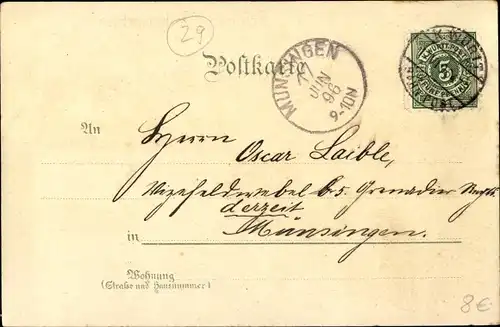 29
Postkarte
MÜNSINGEN
JUN
96
9-10N
K. WÜRTT.
5
An
Herrn
Oscar Laible,
Vizefeldwebel b. 5. Grenadier
derzeit
in Münsingen.
Wohnung
(Straße und Hausnummer)
8€